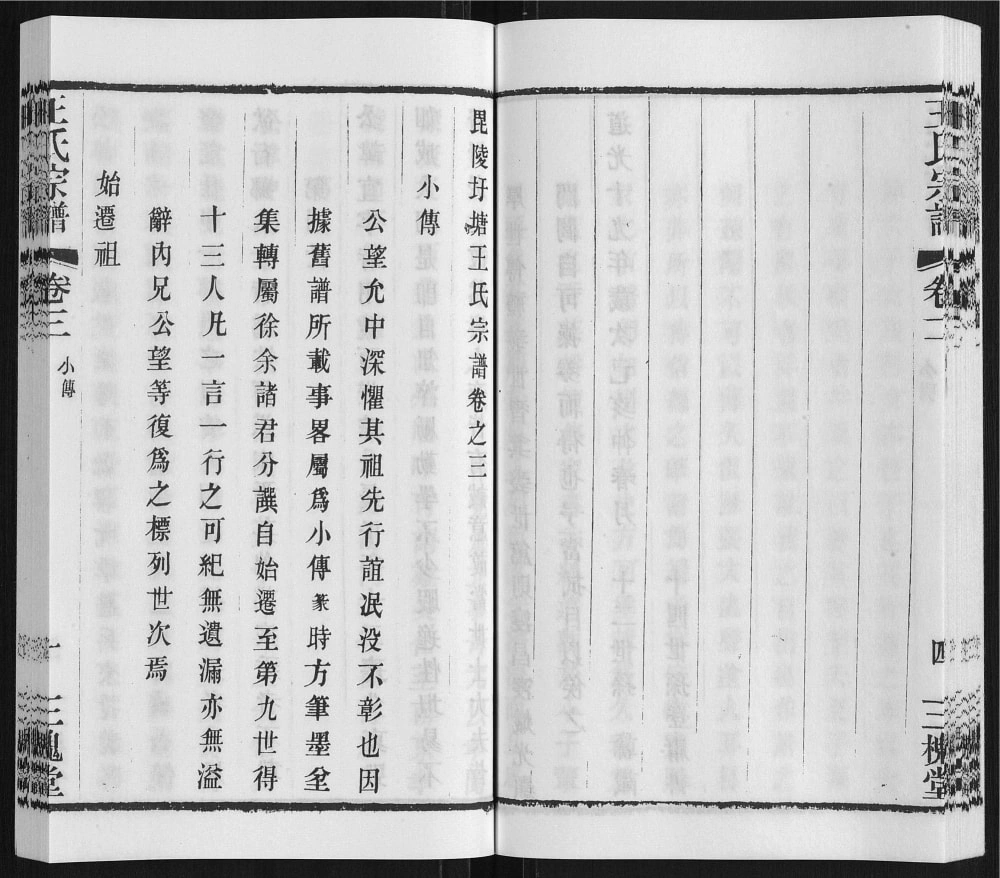 王氏宗譜
卷二
四
三槐堂
毘陵圩塘王氏宗譜卷之三
小傳
公望允中深懼其祖先行誼泯没不彰也因
據舊譜所載事畧屬爲小傳篆時方筆墨坌
集轉屬徐余諸君分譔自始遷至第九世得
十三人凡一言一行之可紀無遺漏亦無溢
辭內兄公望等復爲之標列世次焉
始遷祖
王氏宗譜
卷三
小傳
一
三槐堂